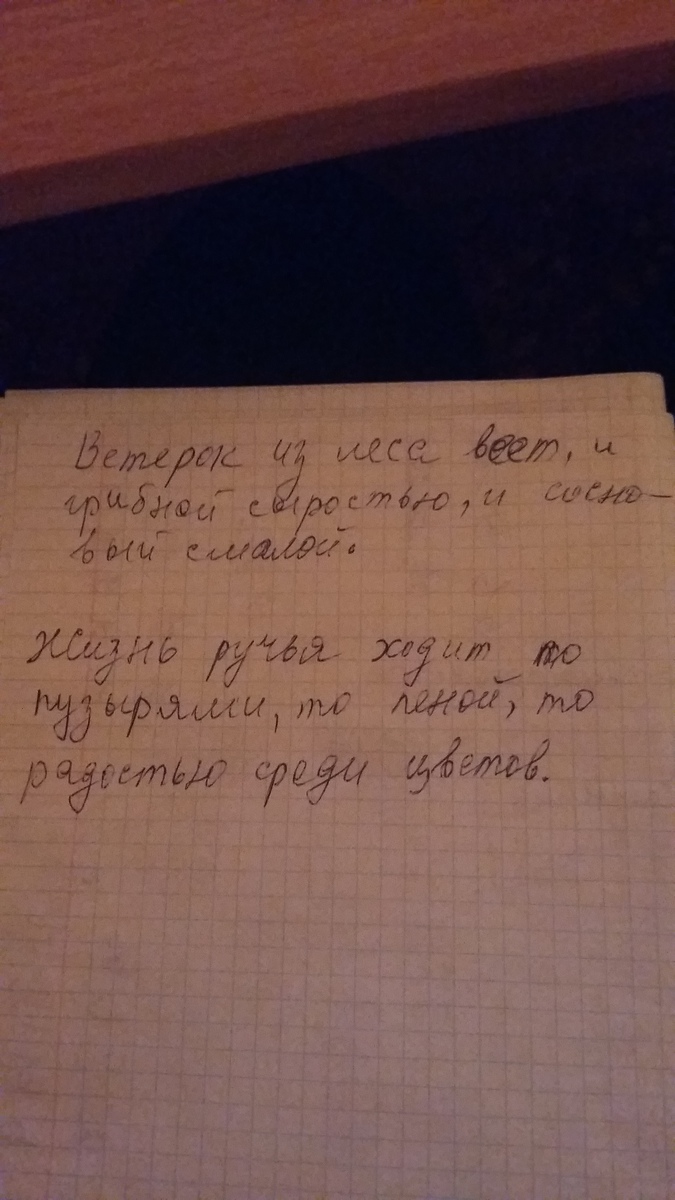 Ветерок из леса веет, и
грибной сыростью, и сосно-
вый смалой.
Жизнь ручья ходит то
пузырями, то пеной, то
радостью среди цветов.